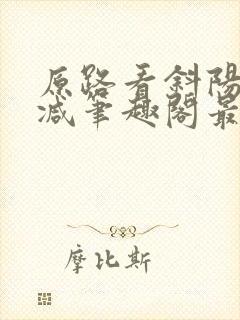 原路看斜陽
减筆趣閣最
摩比斯